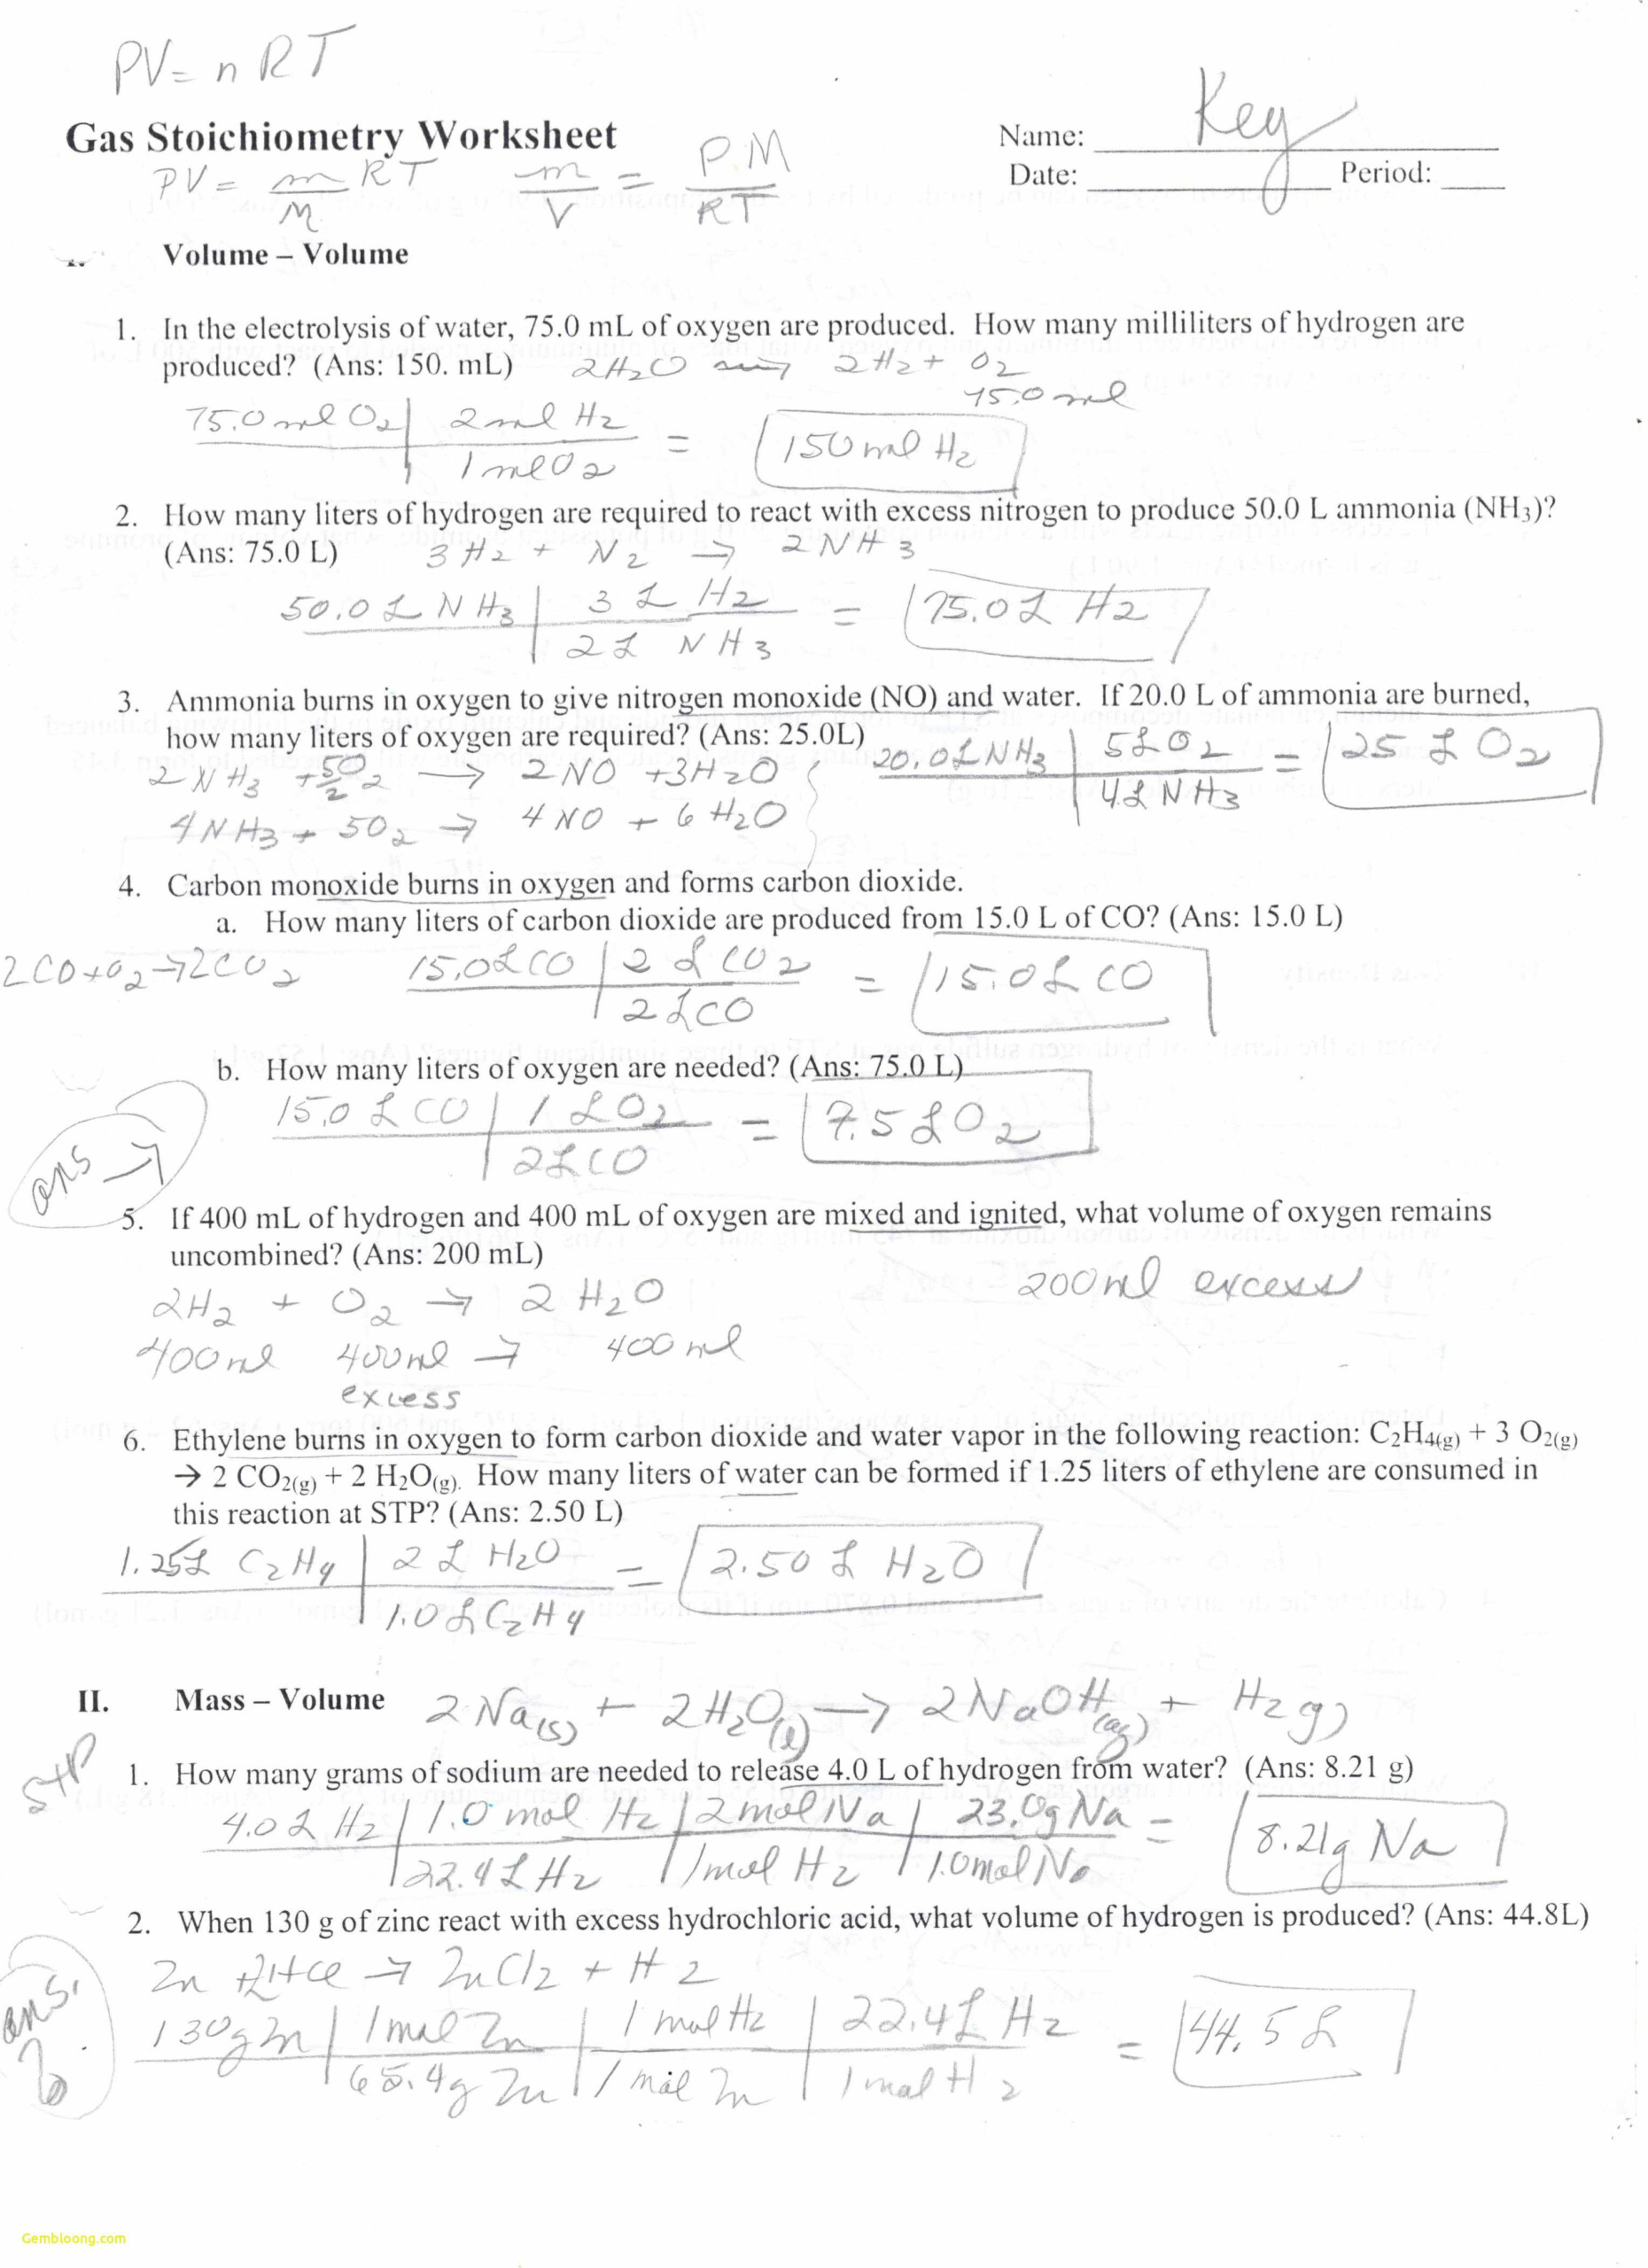 PV = nRT
Gas Stoichiometry Worksheet
Name: Key
Date: Period:
PV = m RT m = P.M
M V RT
Volume – Volume
1. In the electrolysis of water, 75.0 mL of oxygen are produced. How many milliliters of hydrogen are
produced? (Ans: 150. mL) 2H2O → 2H2 + O2
75.0 ml
75.0 ml O2 | 2 ml H2 = 150 ml H2
1 ml O2
2. How many liters of hydrogen are required to react with excess nitrogen to produce 50.0 L ammonia (NH3)?
(Ans: 75.0 L) 3H2 + N2 → 2NH3
50.0 L NH3 | 3 L H2 = 75.0 L H2
2 L NH3
3. Ammonia burns in oxygen to give nitrogen monoxide (NO) and water. If 20.0 L of ammonia are burned,
how many liters of oxygen are required? (Ans: 25.0L) 20.0 L NH3 | 5 L O2 = 25 L O2
2 NH3 + 5/2 O2 → 2NO + 3H2O 4 L NH3
4NH3 + 5O2 → 4NO + 6H2O
4. Carbon monoxide burns in oxygen and forms carbon dioxide.
a. How many liters of carbon dioxide are produced from 15.0 L of CO? (Ans: 15.0 L)
2CO + O2 → 2CO2 15.0 L CO | 2 L CO2 = 15.0 L CO
2 L CO
b. How many liters of oxygen are needed? (Ans: 75.0 L)
15.0 L CO | 1 L O2 = 7.5 L O2
ans → 2 L CO
5. If 400 mL of hydrogen and 400 mL of oxygen are mixed and ignited, what volume of oxygen remains
uncombined? (Ans: 200 mL)
200 ml excess
2H2 + O2 → 2H2O
400 ml 400 ml → 400 ml
excess
6. Ethylene burns in oxygen to form carbon dioxide and water vapor in the following reaction: C2H4(g) + 3 O2(g)
→ 2 CO2(g) + 2 H2O(g). How many liters of water can be formed if 1.25 liters of ethylene are consumed in
this reaction at STP? (Ans: 2.50 L)
1.25 L C2H4 | 2 L H2O = 2.50 L H2O
1.0 L C2H4
II. Mass – Volume 2Na(s) + 2H2O(l) → 2NaOH(aq) + H2 g)
STP
1. How many grams of sodium are needed to release 4.0 L of hydrogen from water? (Ans: 8.21 g)
4.0 L H2 | 1.0 mol H2 | 2 mol Na | 23.0g Na = 8.21g Na
22.4 L H2 | 1 mol H2 | 1.0 mol Na
2. When 130 g of zinc react with excess hydrochloric acid, what volume of hydrogen is produced? (Ans: 44.8L)
Zn + 2HCl → ZnCl2 + H2
ans.
130g Zn | 1 mol Zn | 1 mol H2 | 22.4 L H2 = 44.5 L
65.4g Zn | 1 mol Zn | 1 mol H2
Gembloong.com